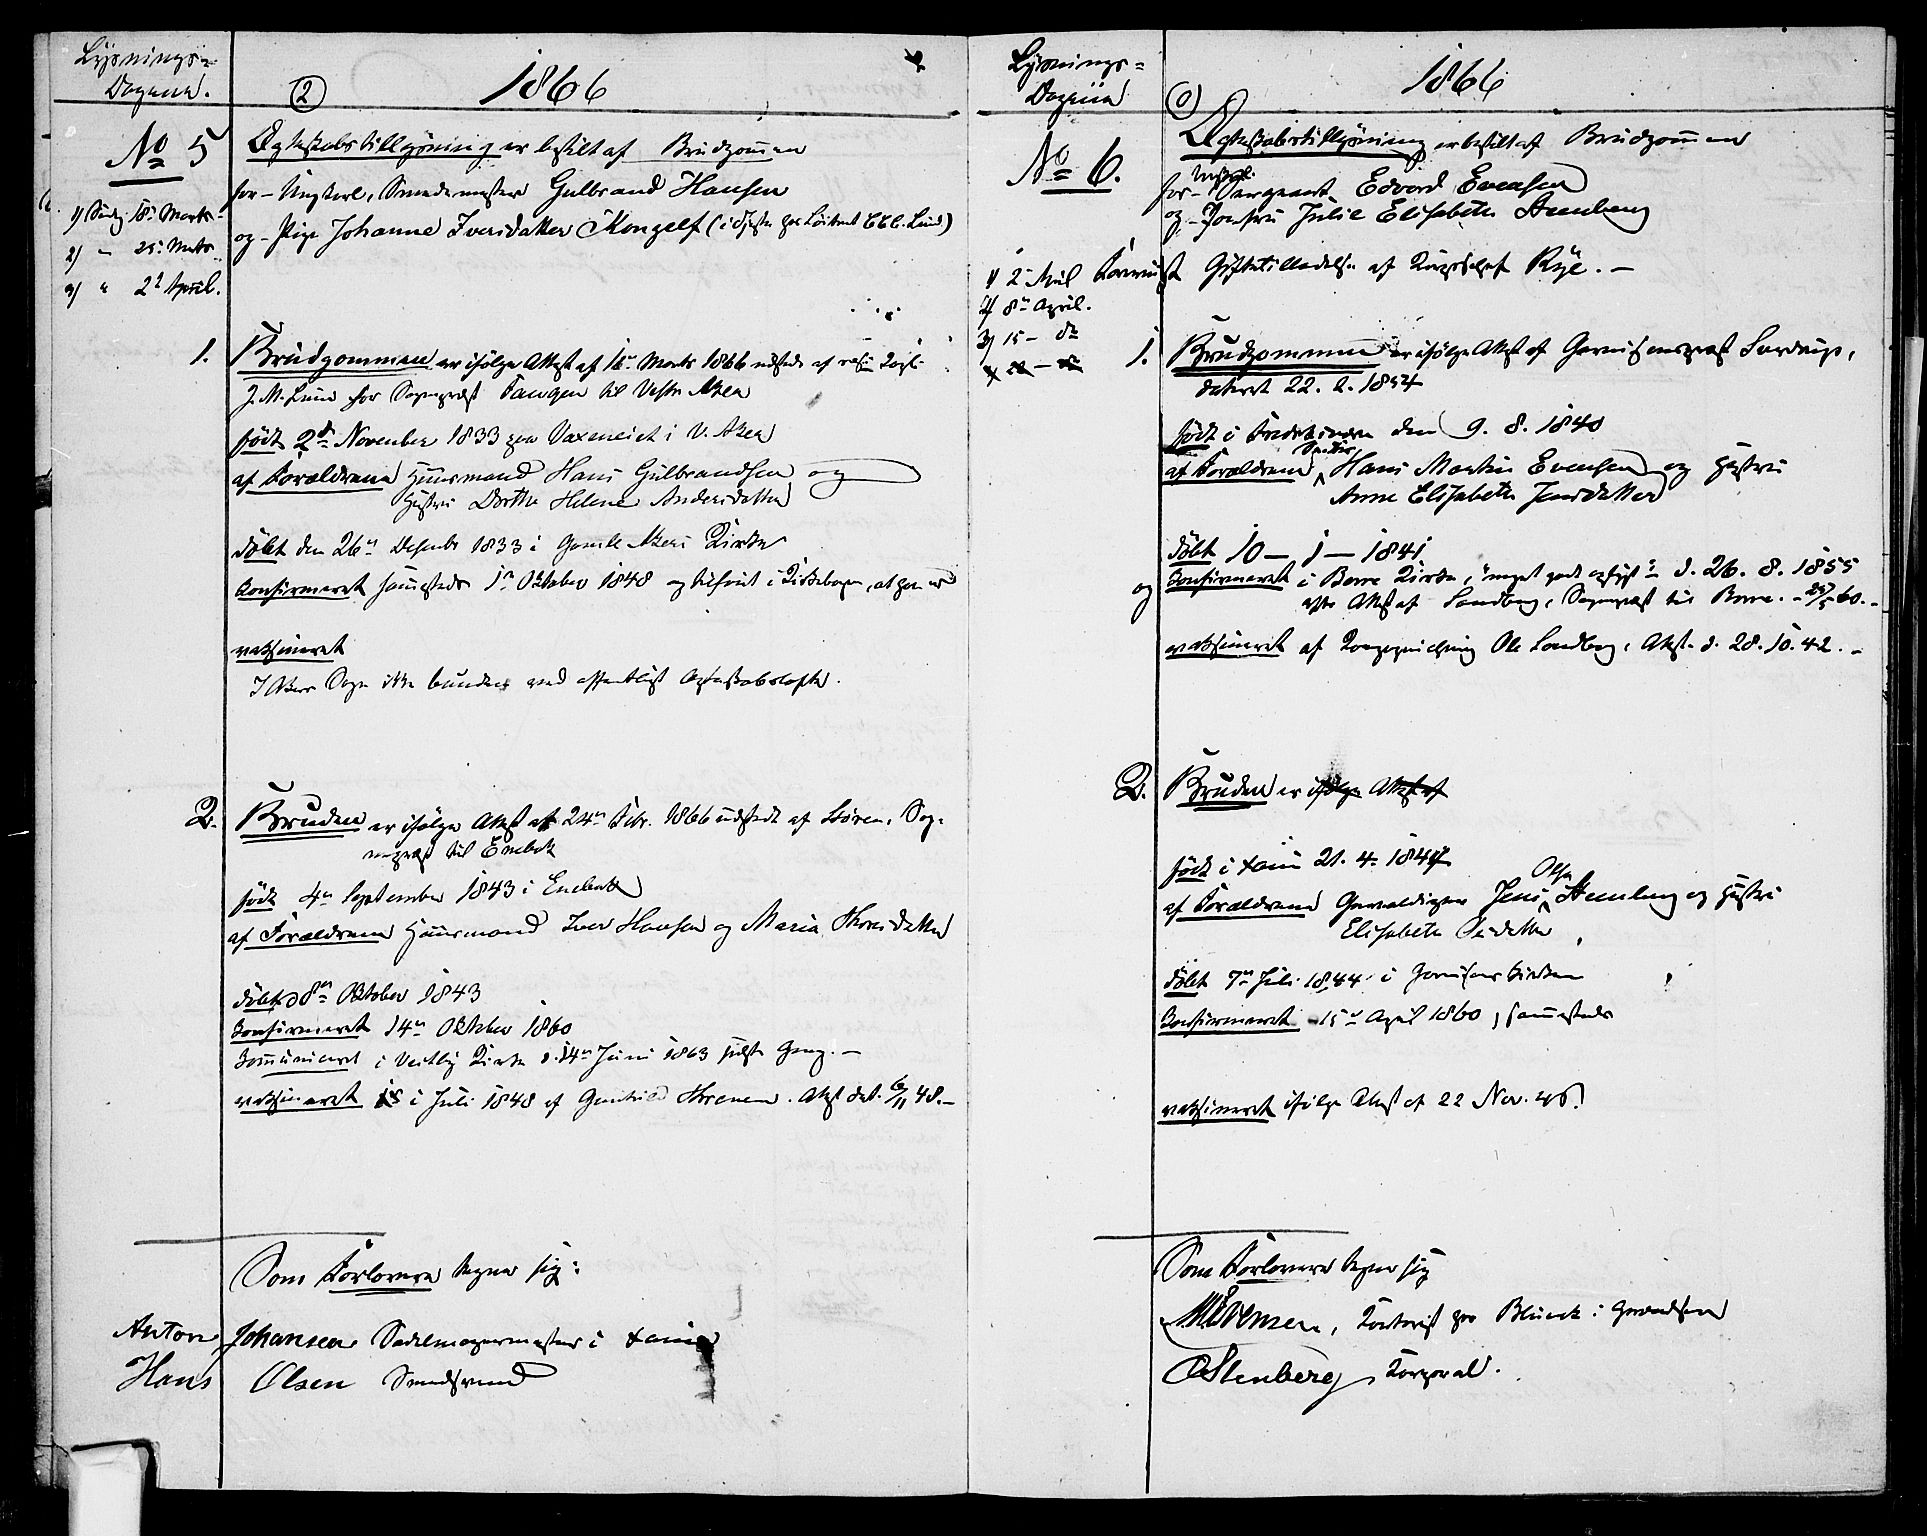 Lysnings-
Dagene.
2
1866
No 5
Ægteskabstillysning er bestilt af Brudgommen
for - Ungkarl, Smedemester Gulbrand Hansen
og - Pige Johanne Iversdatter Mongelf (i Tjeneste hos Lind)
1) Sønd. 18. Marts
2) " 25. Marts
3) " 2. April.
1.
Brudgommen er ifølge Attest af Marts 1866 udstedt af
J. M. Lund for Sogneprest til Vestre Aker
født 2 November 1833 paa i V. Aker
af Forældrene Huusmand Hans Gulbrandsen og
Hustru Dorthe Helene Andersdatter
døbt den 26 December 1833 i Gamle Akers Kirke
konfirmeret sammesteds 1 Oktober 1848 og i Kirkebogen, at han er
vaksineret
I Akers Sogn ikke bunden ved offentligt Ægteskabsløfte.
2.
Bruden er ifølge Attest af 24 Febr. 1866 udstedt af Støren, Sog-
neprest til Enebak
født 4 September 1843 i Enebak
af Forældrene Huusmand Iver Hansen og Maria Thorsdatter
døbt 8 Oktober 1843
konfirmeret 14 Oktober 1860
kommuniceret i Kirke d. 14 Juni 1863 sidste Gang. -
vaksineret i Juli 1848 af Attest dat. 6/11 48. -
Som Forlovere tegner sig:
Anton Johansen Sadelmagermester i
Hans Olsen Smedsvend
Lysnings-
Dagene
0
1866
No 6.
Ægteskabstillysning er bestilt af Brudgommen
for - Ungkl. Sergeant Edvard Evensen
og - Jomfru Julie Elisabeth Stenberg
1) 2 April
Foreviist Giftetilladelse af Rye. -
2) 8 April.
3) 15 - do
1.
Brudgommen er ifølge Attest af Garnisonsprest
dateret 22. 2. 1854
født i den 9. 8. 1840
af Forældrene Hans Martin Evensen og Hustru
Anne Elisabeth Jensdatter
døbt 10 - 1 - 1841
og konfirmeret i Borre Kirke, "meget godt " d. 26. 8. 1855
efter Attest af Landberg, Sogneprest til Borre. - 60. -
vaksineret af Ole Landberg, Attest d. 28. 10. 42. -
2.
Bruden er ifølge Attest af
født i 21. 4. 1844
af Forældrene Gevaldiger Jens Olsen Stenberg og Hustru
Elisabeth
døbt 7 Juli 1844 i Garnisonskirken
konfirmeret 15 April 1860, sammesteds
vaksineret ifølge Attest af 22 Nov. 46.
Som Forlovere tegner sig
Evensen, Kontorist hos
O Stenberg, Korporal.